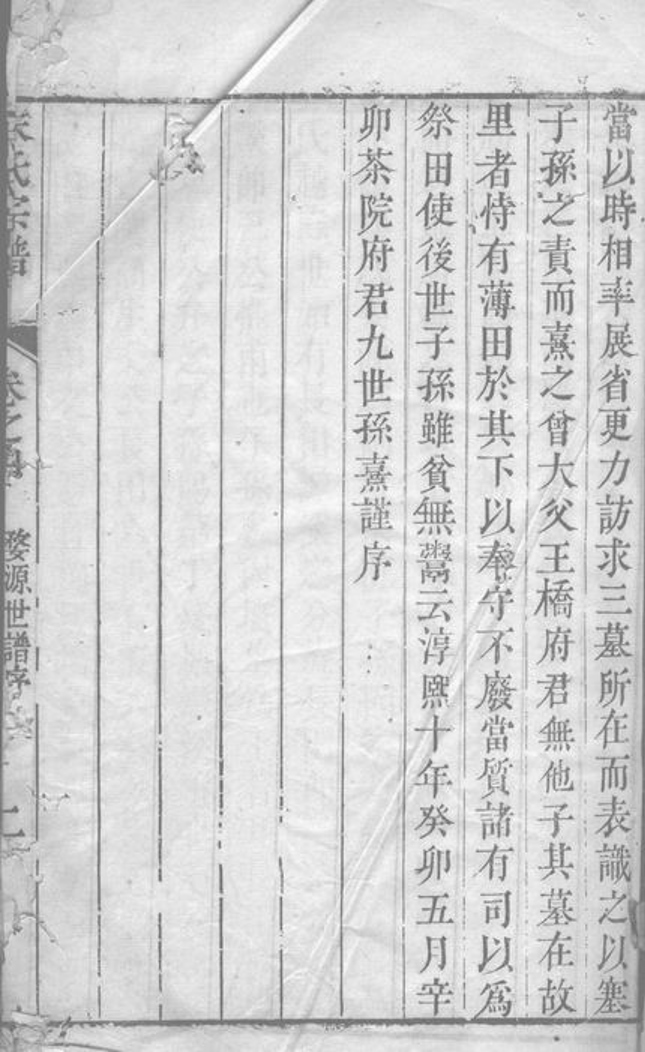 當以時相率展省更力訪求三墓所在而表識之以塞
子孫之責而熹之曾大父王橋府君無他子其墓在故
里者恃有薄田於其下以奉守不廢當質諸有司以爲
祭田使後世子孫雖貧無鬻云淳熈十年癸卯五月辛
卯茶院府君九世孫熹謹序
氏宗譜
卷之
婺源世譜序
二